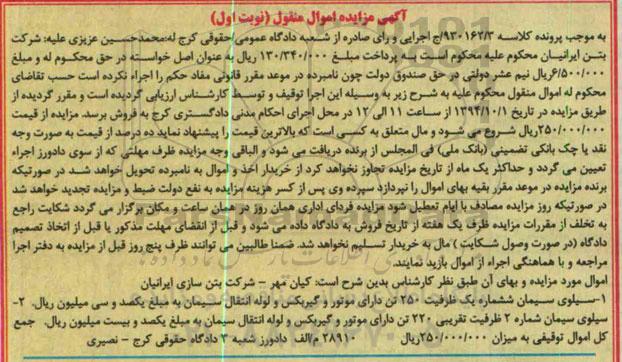 آگهی مزایده اموال منقول (نوبت اول)
به موجب پرونده کلاسه ۹۳۰۱۶۲/۳/ج اجرایی و رای صادره از شعبه دادگاه عمومی حقوقی کرج له:محمدحسین عزیزی علیه: شرکت
بتن ایرانیان محکوم علیه محکوم است به پرداخت مبلغ ۱۳۰/۳۴۰/۰۰۰ ریال به عنوان اصل خواسته در حق محکوم له و مبلغ
۶/۵۰۰/۰۰۰ریال نیم عشر دولتی در حق صندوق دولت چون نامبرده در موعد مقرر قانونی مفاد حکم را اجراء نکرده است حسب تقاضای
محکوم له اموال منقول محکوم علیه به شرح زیر به وسیله این اجرا توقیف و توسط کارشناس ارزیابی گردیده است و مقرر گردیده از
طریق مزایده در تاریخ ۱۳۹۴/۱۰/۱ از ساعت ۱۱ الی ۱۲ در محل اجرای احکام مدنی دادگستری کرج به فروش برسد. مزایده از قیمت
۲۵۰/۰۰۰/۰۰۰ریال شروع می شود و مال متعلق به کسی است که بالاترین قیمت را پیشنهاد نماید ده درصد از قیمت به صورت وجه
نقد یا چک بانکی تضمینی (بانک ملی) فی المجلس از برنده دریافت می شود و الباقی وجه مزایده ظرف مهلتی که از سوی دادورز اجراء
تعیین می گردد و حداکثر یک ماه از تاریخ مزایده تجاوز نخواهد کرد از خریدار اخذ و اموال به نامبرده تحویل خواهد شد در صورتیکه
برنده مزایده در موعد مقرر بقیه بهای اموال را نپردازد سپرده وی پس از کسر هزینه مزایده به نفع دولت ضبط و مزایده تجدید خواهد شد
در صورتیکه روز مزایده مصادف با ایام تعطیل شود مزایده فردای اداری همان روز در همان ساعت و مکان برگزار می گردد شکایت راجع
به تخلف از مقررات مزایده ظرف یک هفته از تاریخ فروش به دادگاه داده می شود و قبل از انقضای مهلت مذکور یا قبل از اتخاذ تصمیم
دادگاه (در صورت وصول شکایت ) مال به خریدار تسلیم نخواهد شد. ضمنا طالبین می توانند ظرف پنج روز قبل از مزایده به دفتر اجرا
مراجعه و با هماهنگی اجراء از اموال بازید نمایند.
اموال مورد مزایده و بهای آن طبق نظر کارشناس بدین شرح است: کیان مهر - شرکت بتن سازی ایرانیان
۱-سیلوی سیمان ششماره یک ظرفیت ۲۵۰ تن دارای موتور و گیربکس و لوله انتقال سیمان به مبلغ یکصد و سی میلیون ریال. ۲-
سیلوی سیمان شماره ۲ ظرفیت تقریبی ۲۲۰ تن دارای موتور و گیربکس و لوله انتقال سیمان به مبلغ یکصد و بیست میلیون ریال. جمع
کل اموال توقیفی به میزان ۲۵۰/۰۰۰/۰۰۰ریال ۲۸۹۱۰ م/الف دادورز شعبه ۳ دادگاه حقوقی کرج - نصیری